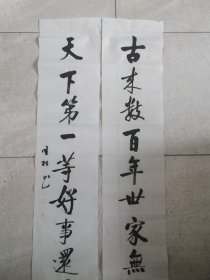 古来数百年世家無
天下第一等好事還